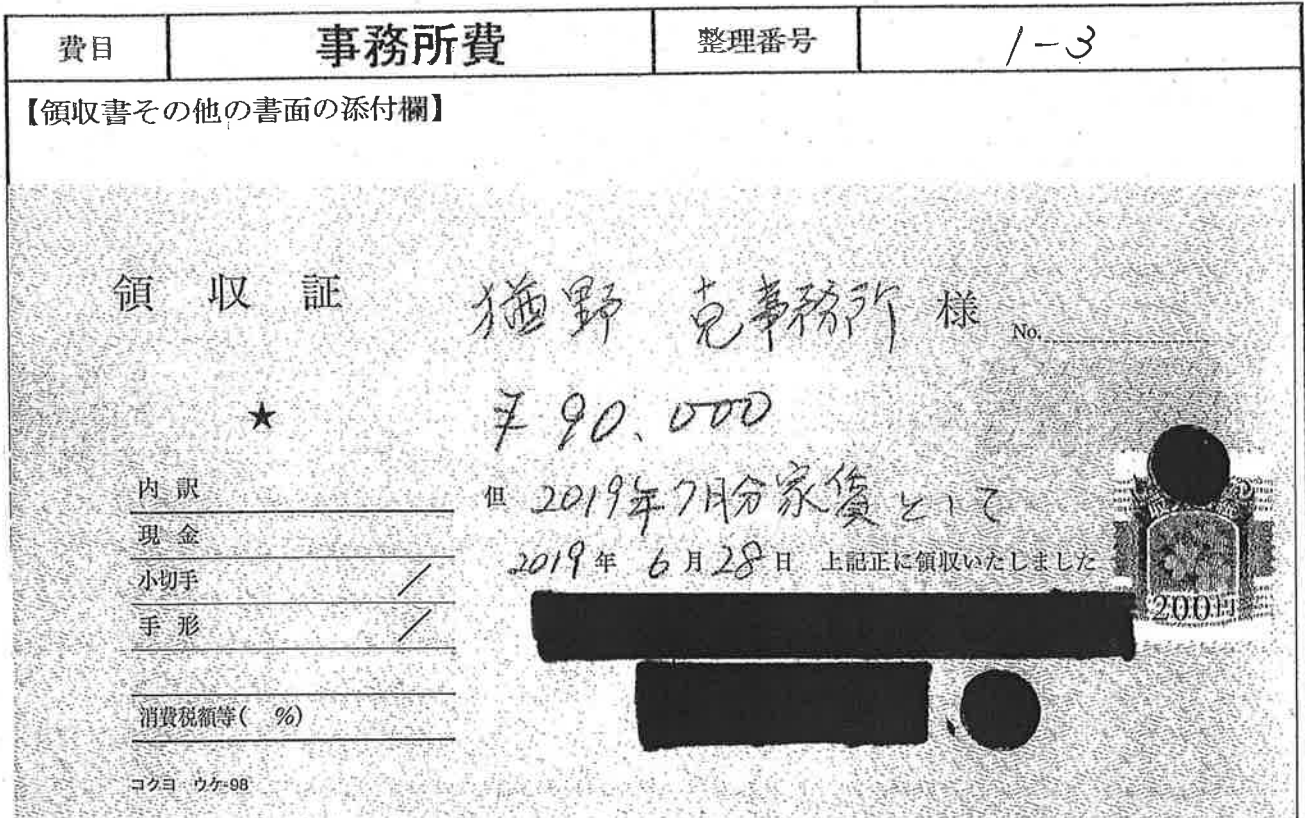 費目 事務所費 整理番号 1-3
【領収書その他の書面の添付欄】
領収証 猶野 克事務所 様 No.
★ ¥90,000
内訳 但 2019年7月分家賃として
現金 2019年 6月28日 上記正に領収いたしました
小切手 /
手形 /
200円
消費税額等( %)
コクヨ ウケ-98